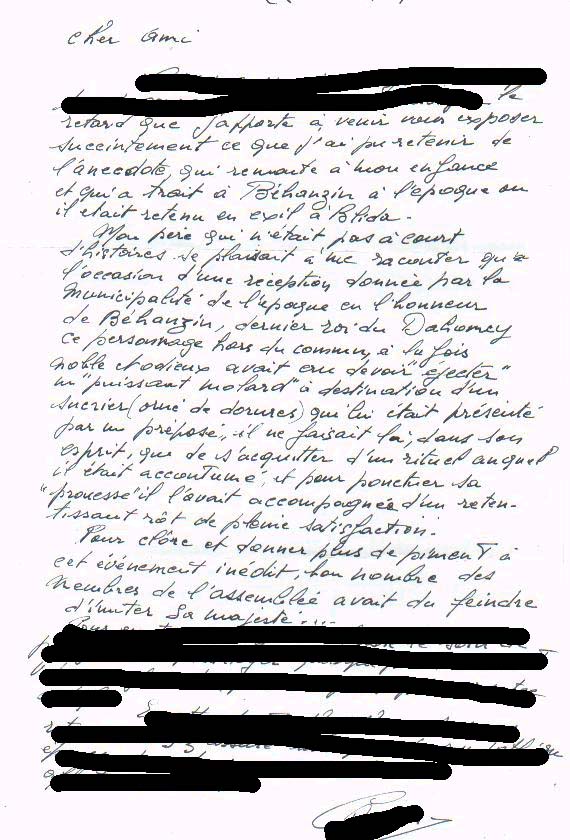 cher ami
le
retard que j'apporte à venir vous exposer
succintement ce que j'ai pu retenir de
l'anecdote, qui remonte à mon enfance
et qui a trait à Béhanzin à l'époque ou
il était retenu en exil à Blida.
Mon père qui n'était pas à court
d'histoires se plaisait à me raconter qu'à
l'occasion d'une réception donnée par la
Municipalité de l'époque en l'honneur
de Béhanzin, dernier roi du Dahomey
ce personnage hors du commun, à la fois
noble et odieux avait cru devoir "éjecter"
un "puissant molard" à destination d'un
sucrier (orné de dorures) qui lui était présenté
par un préposé, il ne faisait là, dans son
esprit, que de s'acquitter d'un rituel auquel
il était accoutumé, et pour ponctuer sa
"prouesse" il l'avait accompagnée d'un reten-
tissant rôt de pleine satisfaction.
Pour clôre et donner plus de piment à
cet événement inédit, bon nombre des
membres de l'assemblée avait du feindre
d'imiter Sa majesté....